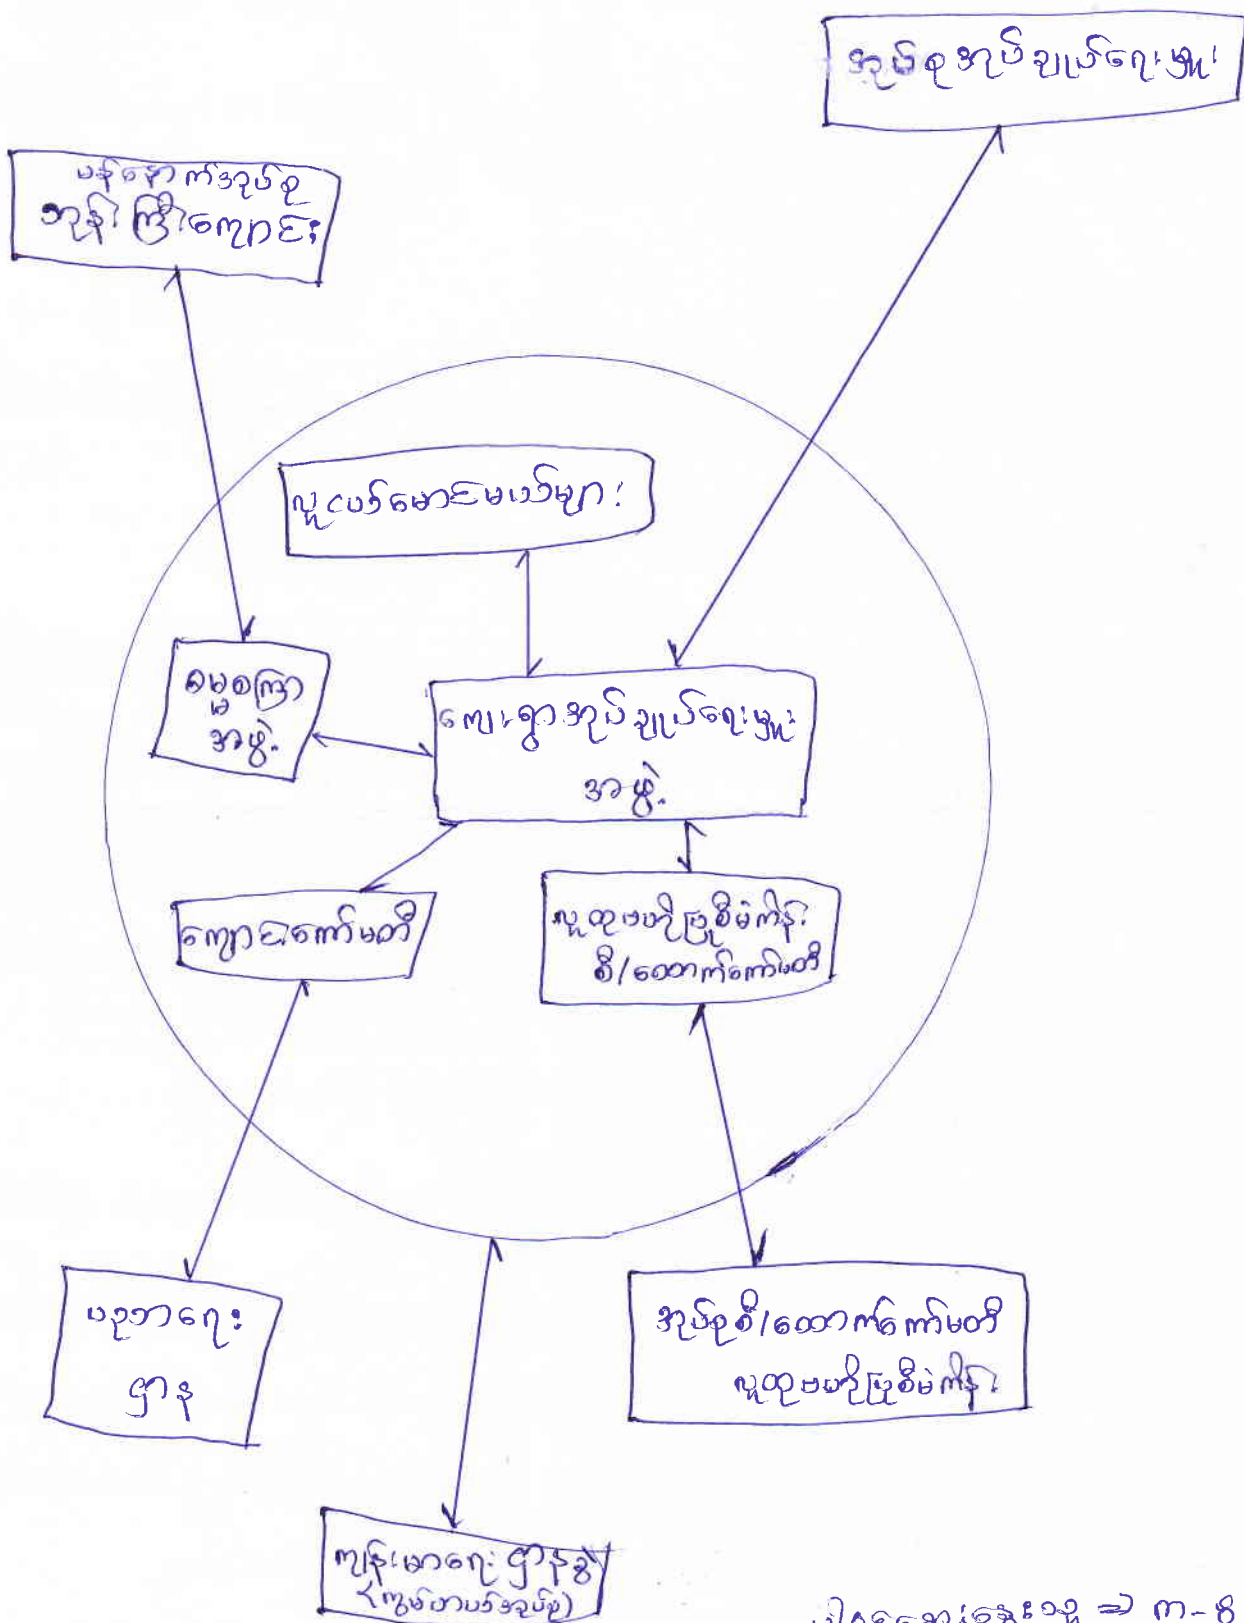 အုပ်စုအုပ်ချုပ်ရေးမှူး
မန်နောက်အုပ်စု
ဘုန်းကြီးကျောင်း
လူငယ်မောင်မယ်များ
ဓမ္မစကြာ
အဖွဲ့
ကျေးရွာအုပ်ချုပ်ရေးမှူး
အဖွဲ့
ကျောင်းကော်မတီ
လူထုဗဟိုပြုစီမံကိန်း
စီ/ထောက်ကော်မတီ
ပညာရေး
ဌာန
အုပ်စုစီ/ထောက်ကော်မတီ
လူထုဗဟိုပြုစီမံကိန်း
ကျန်းမာရေးဌာနခွဲ
⇒ ကျ-၈